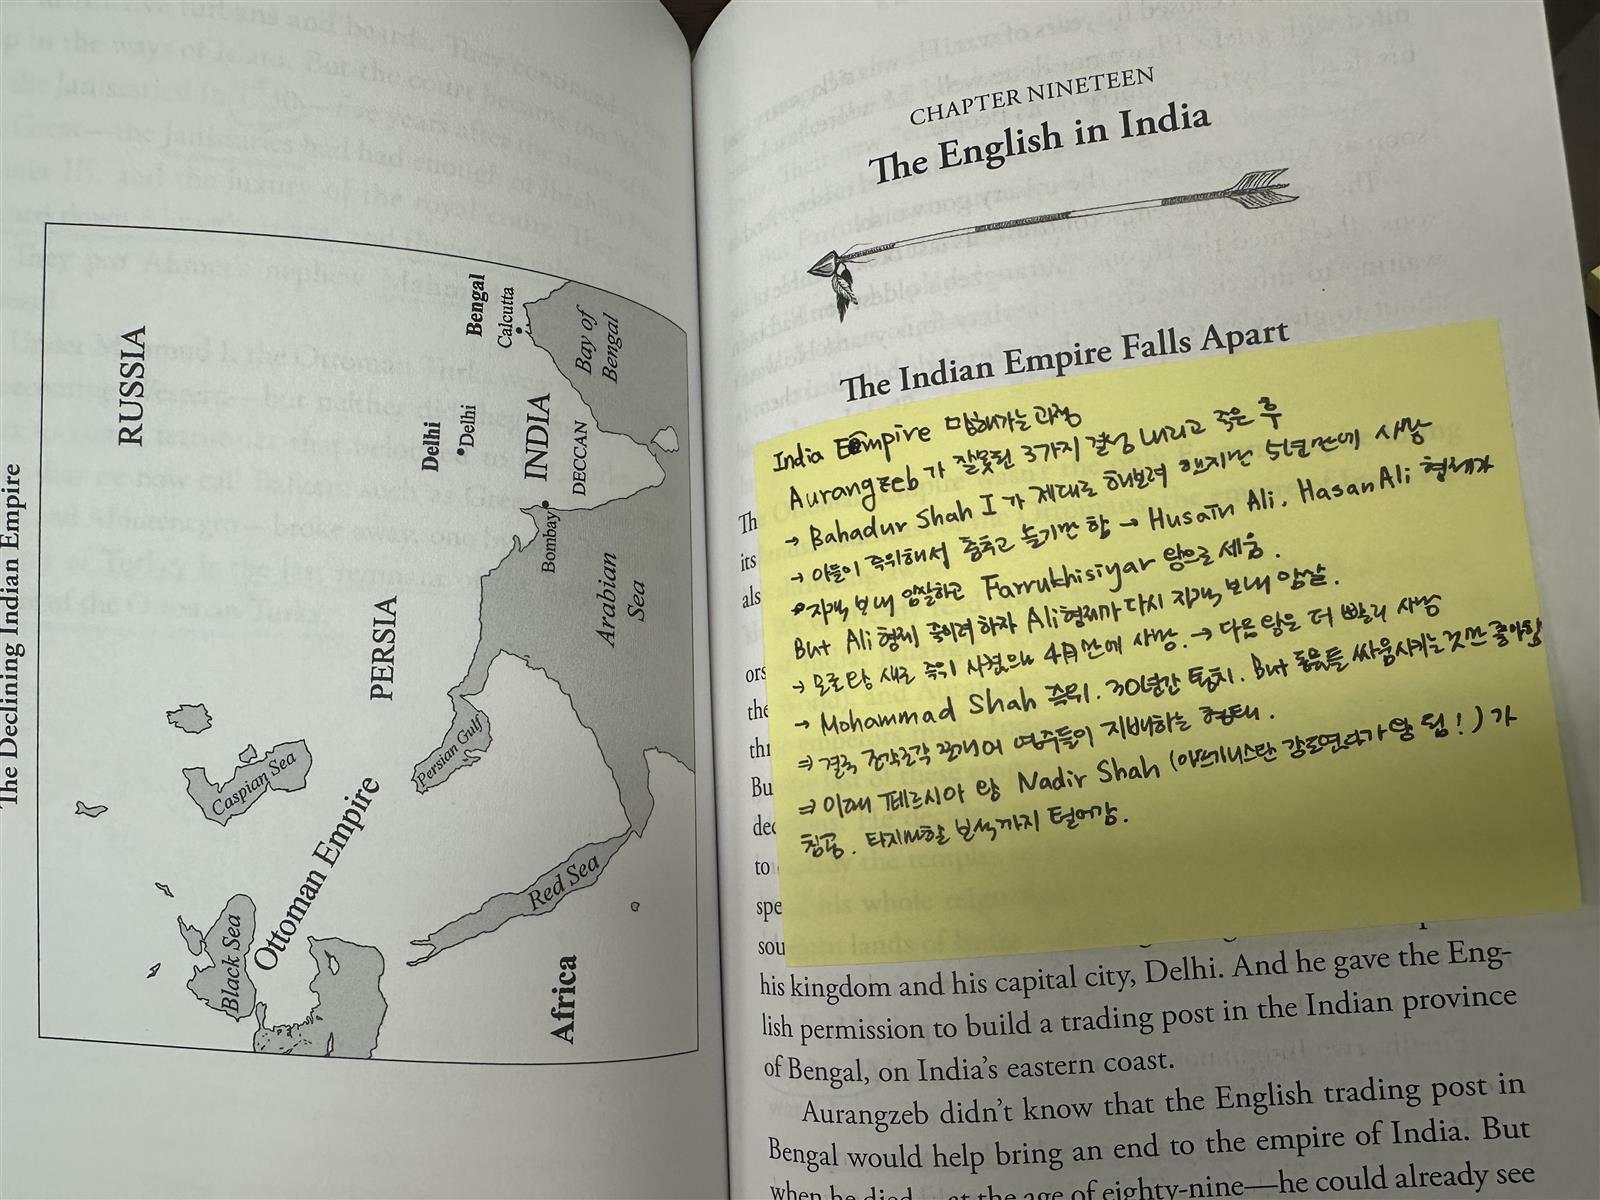 The Declining Indian Empire
RUSSIA
Bengal
Calcutta
Bay of
Bengal
Delhi
Delhi
INDIA
DECCAN
Bombay
Arabian
Sea
PERSIA
Persian Gulf
Caspian Sea
Ottoman Empire
Red Sea
Black Sea
Africa
CHAPTER NINETEEN
The English in India
The Indian Empire Falls Apart
India Empire 망해가는 과정
Aurangzeb가 잘못된 3가지 결정 내리고 죽은 후
→ Bahadur Shah I가 제대로 해보려 했지만 5년만에 사망
→ 아들이 즉위해서 춤추고 놀기만 함 → Husain Ali, Hasan Ali 형제가
자객 보내 암살하고 Farrukhisiyar 왕으로 세움.
But Ali 형제 죽이려 하자 Ali형제가 다시 자객 보내 암살.
→ 새로 즉위 시켰으나 4月만에 사망. → 다음 왕은 더 빨리 사망
→ Mohammad Shah 즉위. 30년간 통치. But 동물들 싸움시키는것만 좋아함
⇒ 결국 조각조각 쪼개어 영주들이 지배하는 형태.
⇒ 이때 페르시아 왕 Nadir Shah (아프가니스탄 강도였다가 왕 됨!)가
침공. 타지마할 보석까지 털어감.
Th
its
als
ors
the
thr
Bu
dec
to
spe
sou
his kingdom and his capital city, Delhi. And he gave the Eng-
lish permission to build a trading post in the Indian province
of Bengal, on India's eastern coast.
Aurangzeb didn't know that the English trading post in
Bengal would help bring an end to the empire of India. But
when he died—at the age of eighty-nine—he could already see